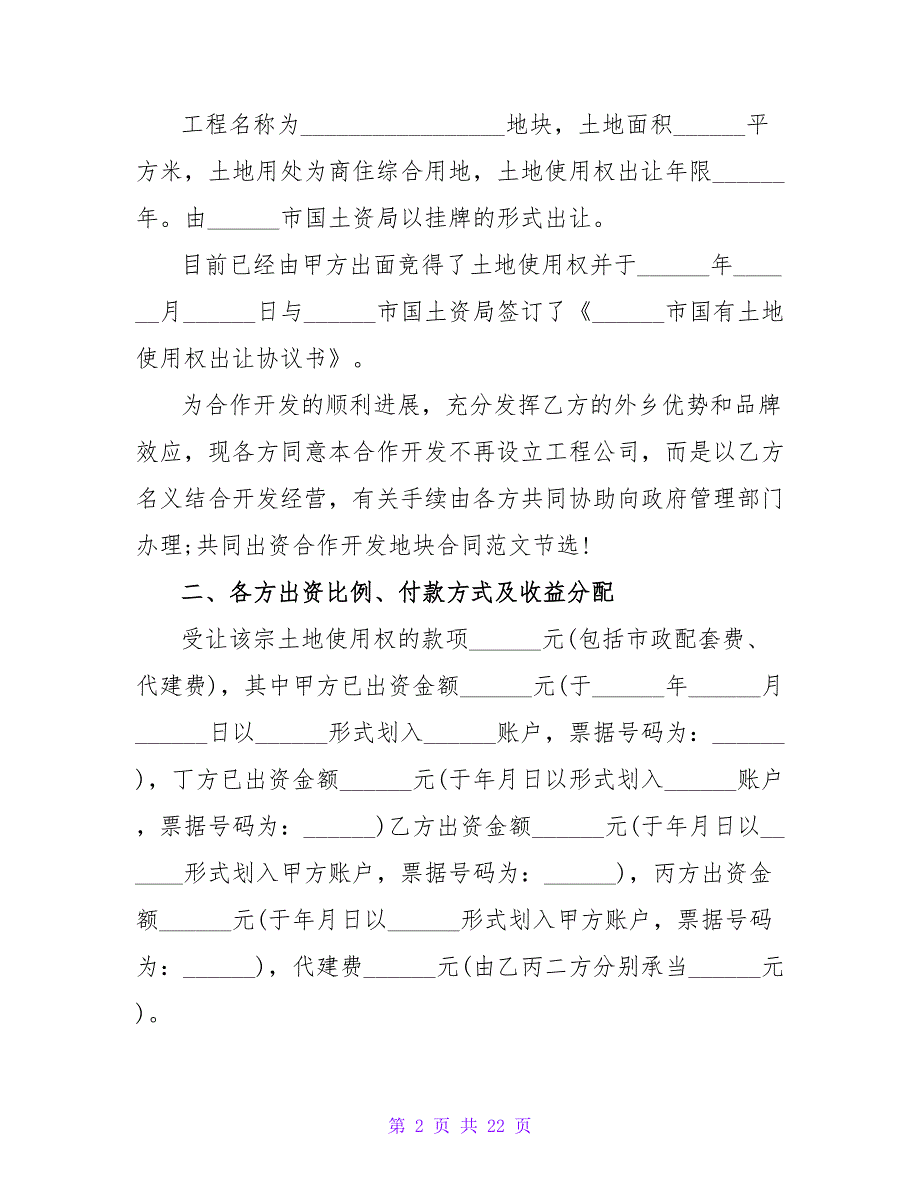 工程名称为_________________地块，土地面积______平
方米，土地用处为商住综合用地，土地使用权出让年限______
年。由______市国土资局以挂牌的形式出让。
目前已经由甲方出面竞得了土地使用权并于______年____
__月______日与______市国土资局签订了《______市国有土地
使用权出让协议书》。
为合作开发的顺利进展，充分发挥乙方的外乡优势和品牌
效应，现各方同意本合作开发不再设立工程公司，而是以乙方
名义结合开发经营，有关手续由各方共同协助向政府管理部门
办理;共同出资合作开发地块合同范文节选!
二、各方出资比例、付款方式及收益分配
受让该宗土地使用权的款项______元(包括市政配套费、
代建费)，其中甲方已出资金额______元(于______年______月
______日以______形式划入______账户，票据号码为：______
)，丁方已出资金额______元(于年月日以形式划入______账户
，票据号码为：______)乙方出资金额______元(于年月日以__
____形式划入甲方账户，票据号码为：______)，丙方出资金
额______元(于年月日以______形式划入甲方账户，票据号码
为：______)，代建费______元(由乙丙二方分别承当______元
)。
第 2 页 共 22 页